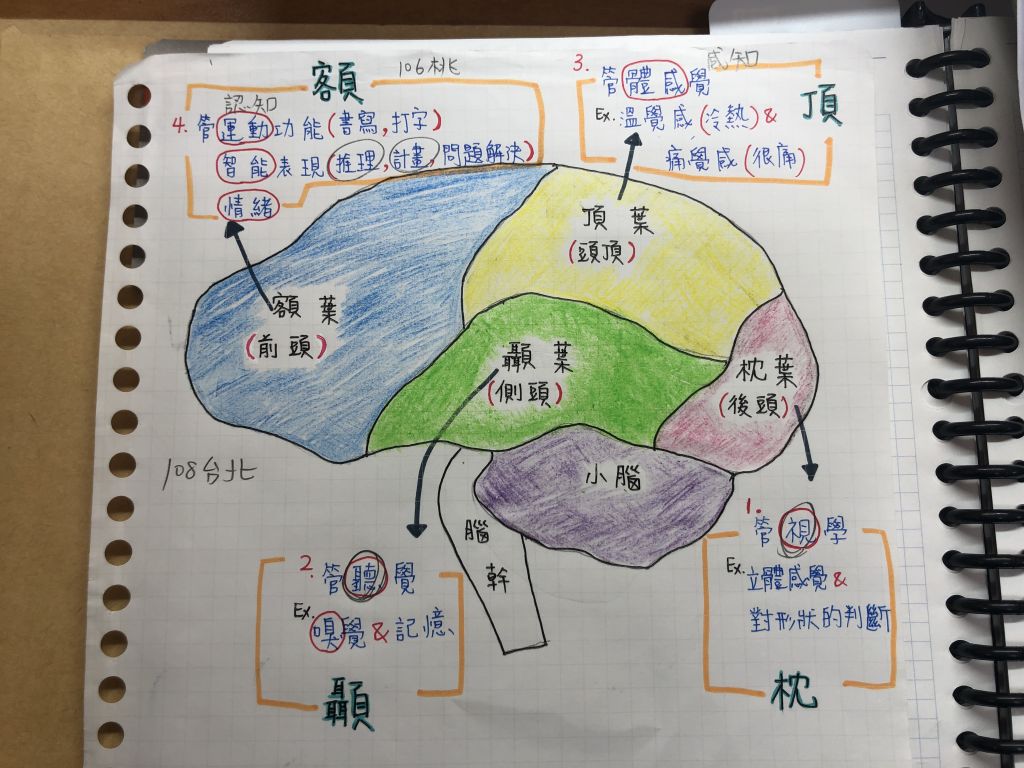 額
106桃
認知
4. 管運動功能(書寫,打字)
智能表現(推理,計畫,問題解決)
情緒
3. 管體感覺
感知
頂
Ex. 溫覺感(冷熱)&
痛覺感(很痛)
頂葉
(頭頂)
額葉
(前頭)
顳葉
(側頭)
枕葉
(後頭)
小腦
腦幹
108台北
2. 管聽覺
Ex. 嗅覺&記憶
顳
1. 管視學
Ex. 立體感覺&
對形狀的判斷
枕